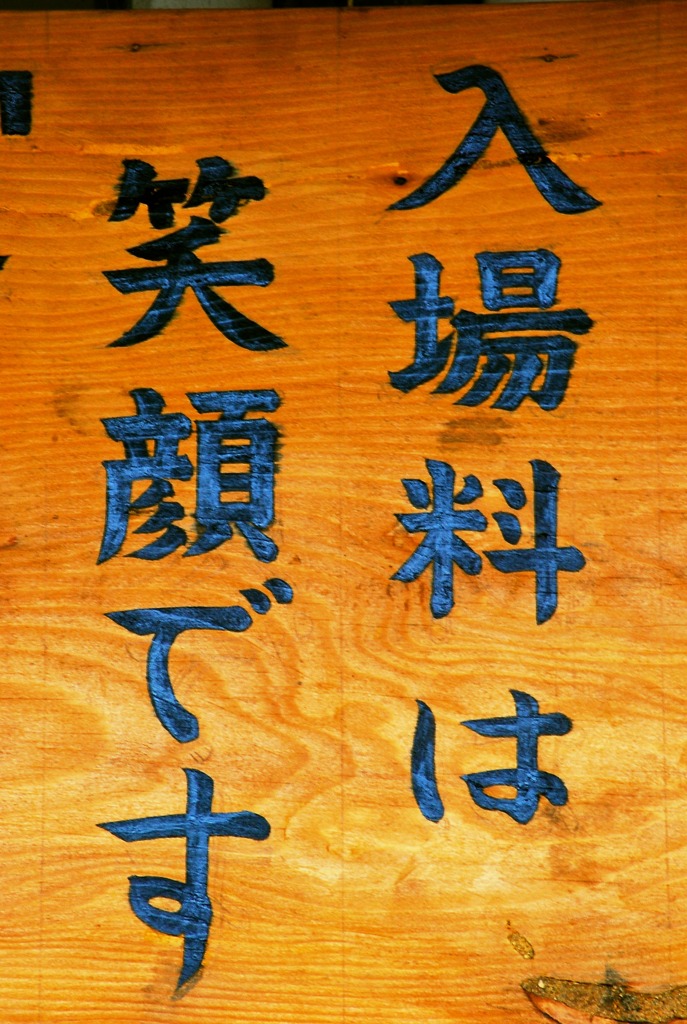 入場料は
笑顔です